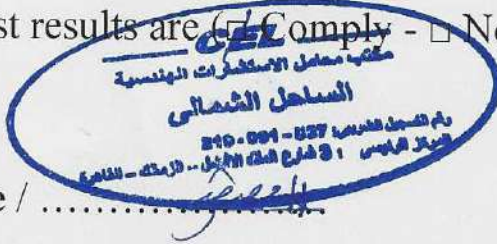 st results are (□ Comply - □ No
CEL
مكتب معامل الاستشارات الهندسية
الساحل الشمالى
رقم التسجيل الضريبى: 537 - 091 - 210
المركز الرئيسى : 3 شارع الملك الأفضل - الزمالك - القاهرة
e / ........................